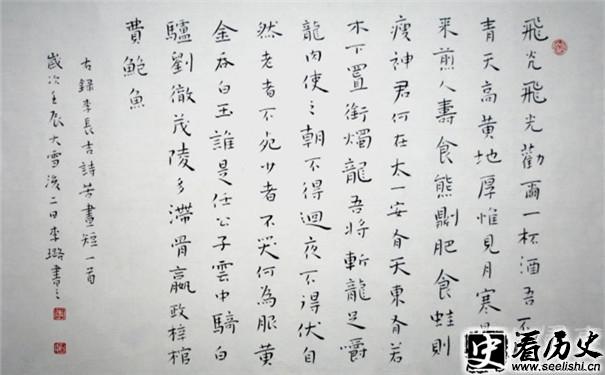 飛光飛光勸爾一杯酒吾不
青天高黃地厚惟見月寒
來煎人壽食熊則肥食蛙則
瘦神君何在太一安有天東有若
木下置銜燭龍吾將斬龍足嚼
龍肉使之朝不得迴夜不得伏自
然老者不死少者不哭何為服黃
金吞白玉誰是任公子雲中騎白
驢劉徹茂陵多滯骨嬴政梓棺
費鮑魚
右錄李長吉詩苦晝短一首
歲次壬辰大雪後二日李璐書之
史
看历史
www.seelishi.cn